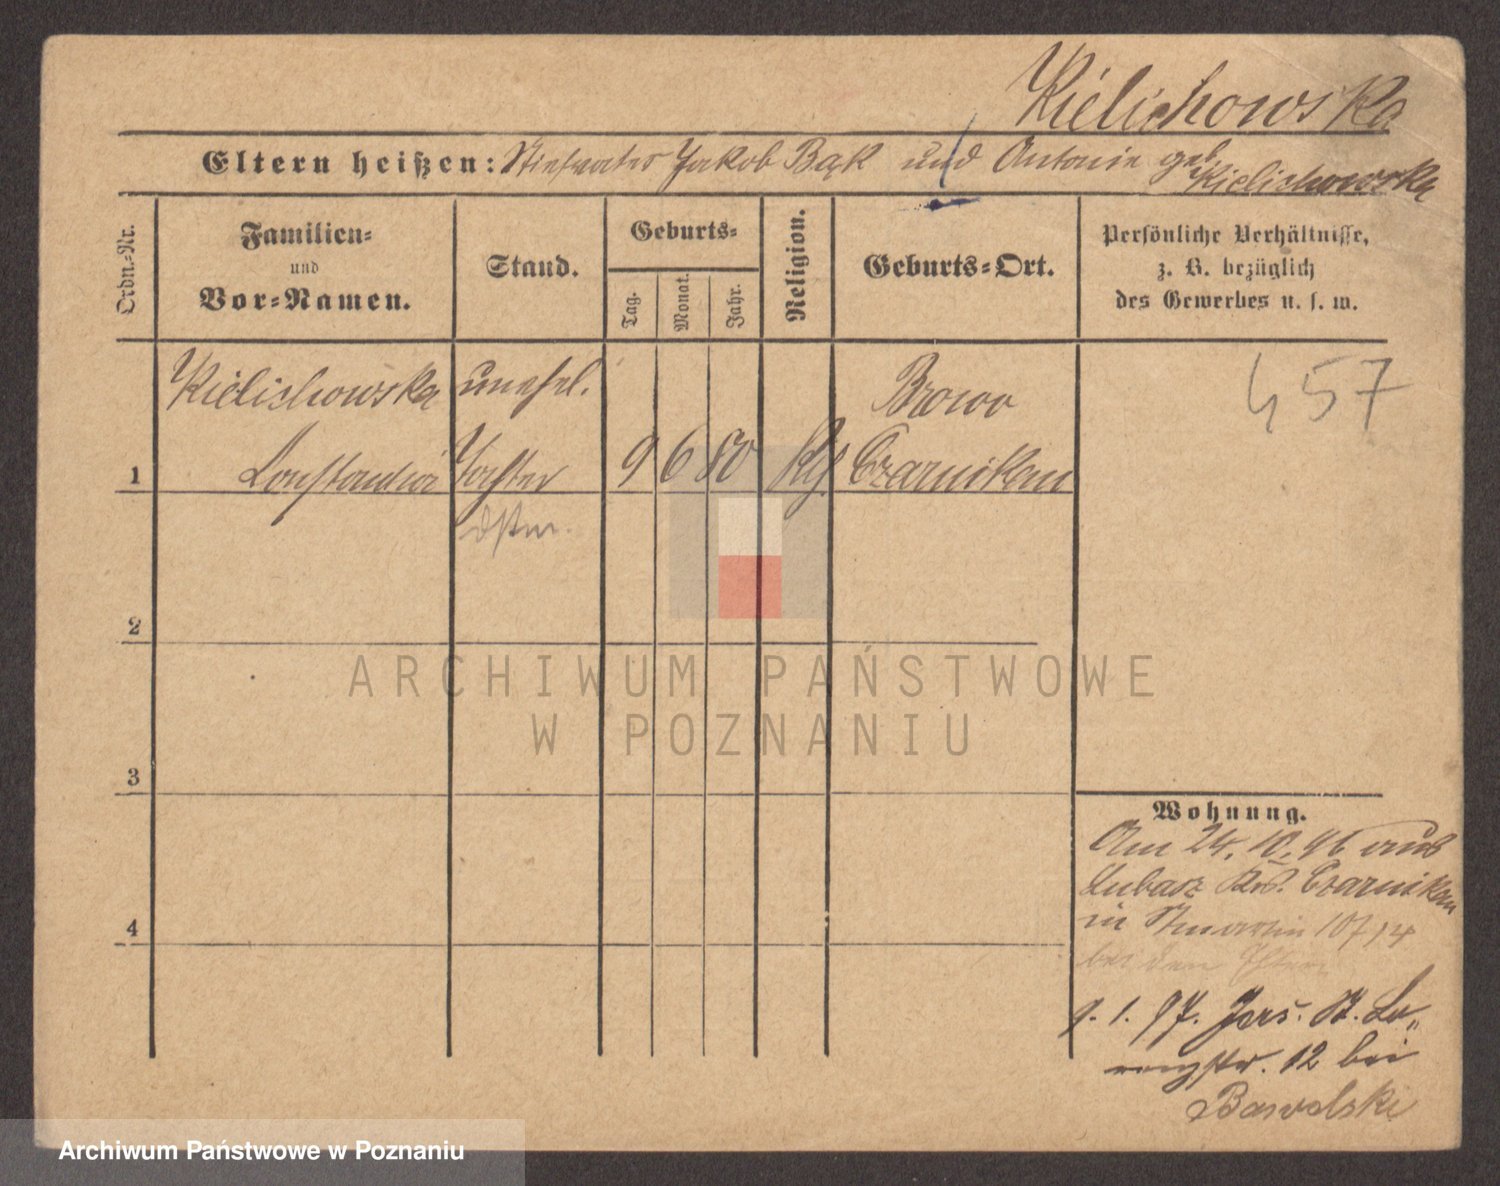 Kielichowska
Eltern heißen: Stiefvater Jakob Bąk und Antonie geb.
Kielichowska
Ordn.-Nr.
Familien-
und
Vor-Namen.
Stand.
Geburts-
Tag.
Monat.
Jahr.
Religion.
Geburts-Ort.
Persönliche Verhältnisse,
z. B. bezüglich
des Gewerbes u. s. w.
Kielichowska unehel. Brzowo
1 Konstantia Tochter 9 6 80 kth. Czarnikau
457
2
3
4
Wohnung.
Am 24. 10. 96 aus
Lubasz Krs. Czarnikau
in St
bei den Eltern
9. 1. 97. Jers. St. Lo-
renzstr. 12 bei
ARCHIWUM PAŃSTWOWE
W POZNANIU
Archiwum Państwowe w Poznaniu